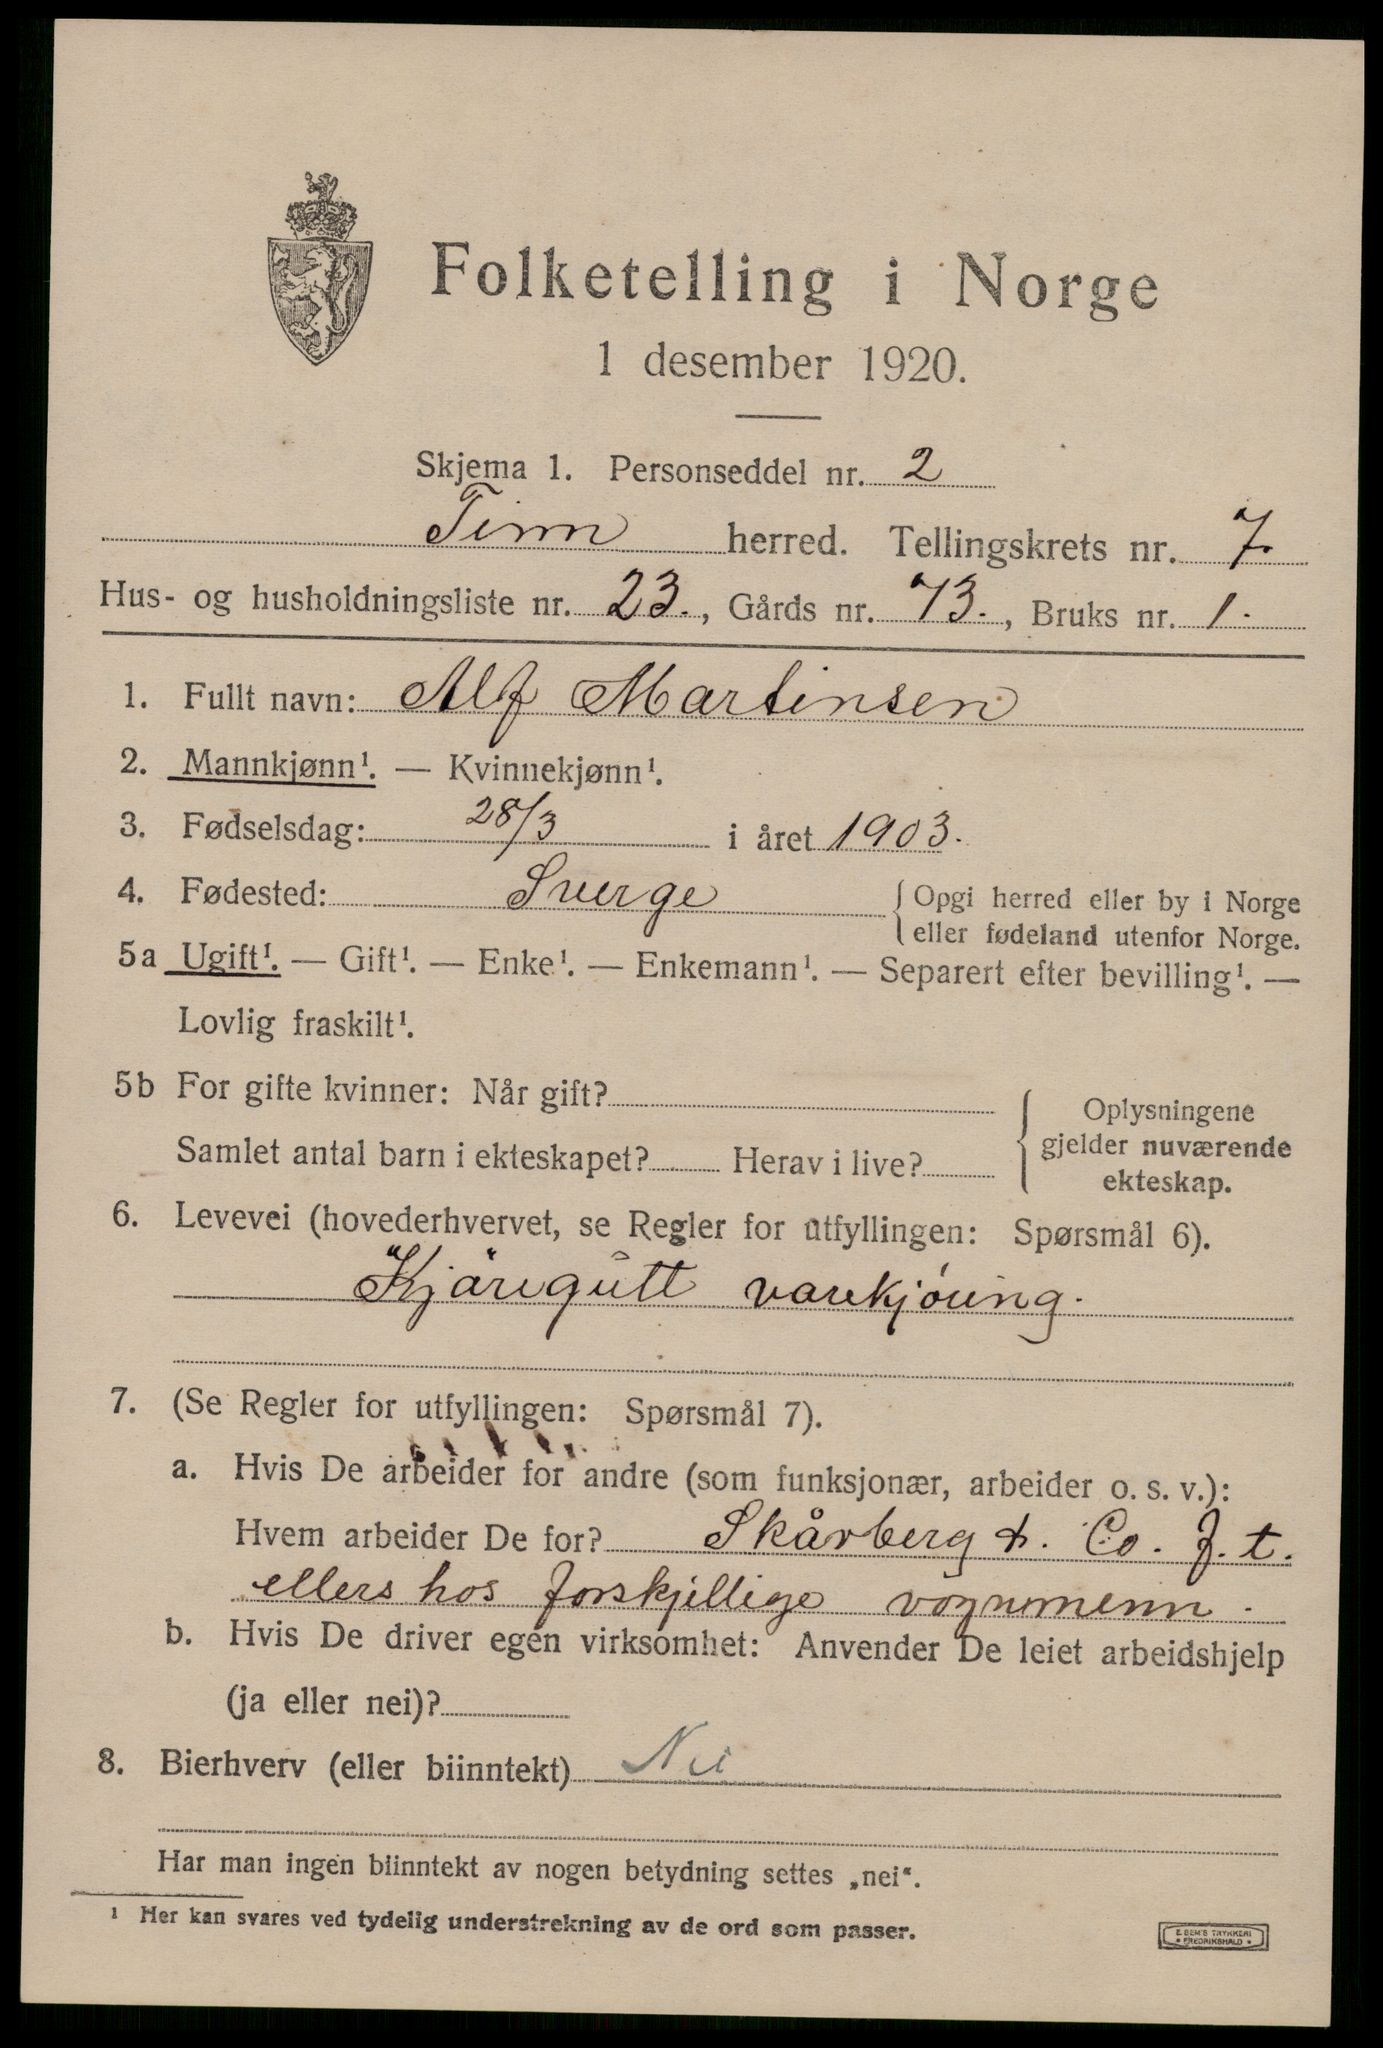 Folketelling i Norge
1 desember 1920.
Skjema 1. Personseddel nr. 2
Tinn herred. Tellingskrets nr. 7.
Hus- og husholdningsliste nr. 23., Gårds nr. 73., Bruks nr. 1.
1. Fullt navn: Alf Martinsen
2. Mannkjønn¹. — Kvinnekjønn¹.
3. Fødselsdag: 28/3 i året 1903.
4. Fødested: Sverge { Opgi herred eller by i Norge
eller fødeland utenfor Norge.
5a Ugift¹. — Gift¹. — Enke¹. — Enkemann¹. — Separert efter bevilling¹. —
Lovlig fraskilt¹.
5b For gifte kvinner: Når gift?
Samlet antal barn i ekteskapet? Herav i live?
{ Oplysningene
gjelder nuværende
ekteskap.
6. Levevei (hovederhvervet, se Regler for utfyllingen: Spørsmål 6).
Kjöregutt varekjöring.
7. (Se Regler for utfyllingen: Spørsmål 7).
a. Hvis De arbeider for andre (som funksjonær, arbeider o. s. v.):
Hvem arbeider De for? Skårberg & Co. f. t.
ellers hos forskjellige vognmenn.
b. Hvis De driver egen virksomhet: Anvender De leiet arbeidshjelp
(ja eller nei)?
8. Bierhverv (eller biinntekt) Nei
Har man ingen biinntekt av nogen betydning settes „nei“.
¹ Her kan svares ved tydelig understrekning av de ord som passer.
E SEM'S TRYKKERI
• FREDRIKSHALD •